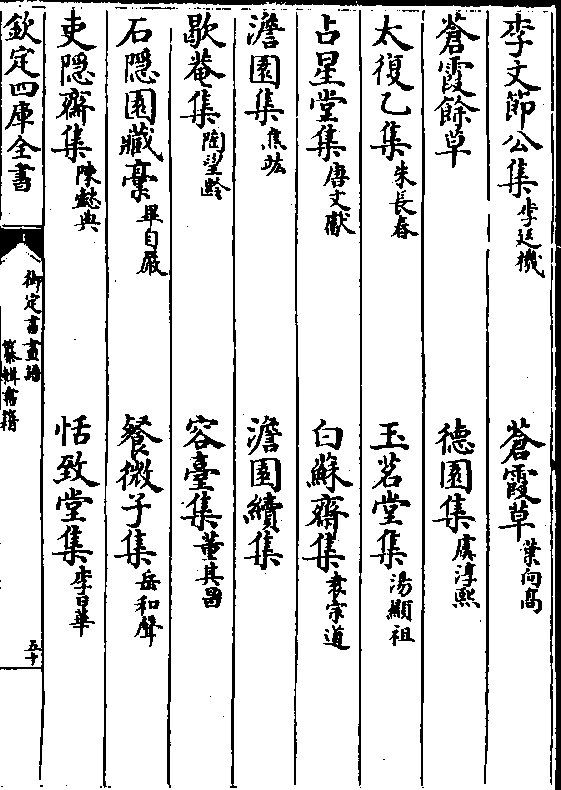 李文節公集李廷機 蒼霞草葉向高
蒼霞餘草 德園集虞淳熙
太復乙集朱長春 玉茗堂集湯顯祖
占星堂集唐文獻 白蘇齋集袁宗道
澹園集焦竑 澹園續集
歇菴集陶望齡 容臺集董其昌
石隠園藏稾畢自嚴 餐微子集岳和聲
吏隠齋集陳懿典 恬致堂集李日華
欽定四庫全書 御定書畫譜 纂輯書籍 五十